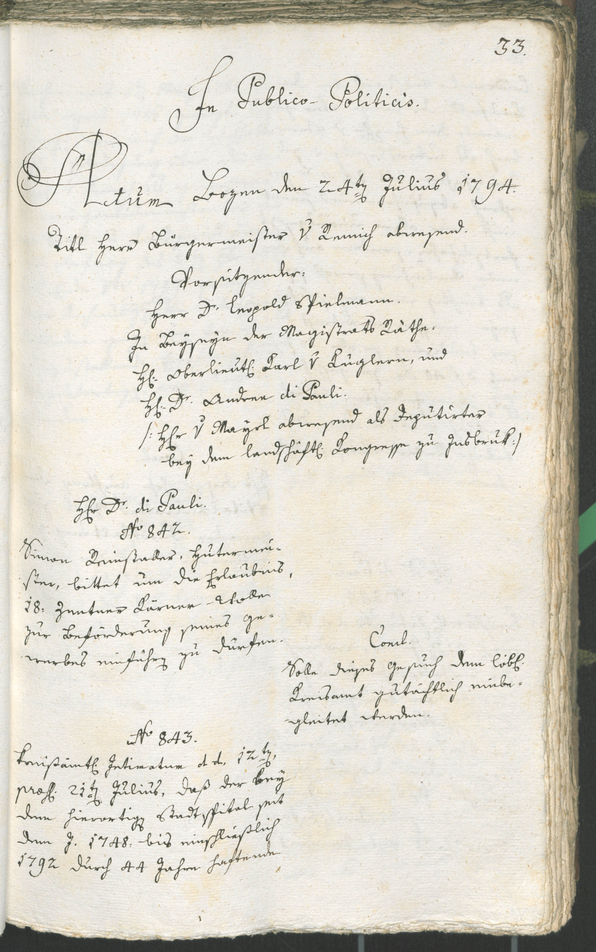 33.
In Publico-Politicis.
Actum Bozen den 24ten Julius 1794.
Titl Herr Bürgermeister v Remich abwesend.
Vorsitzender:
Herr Dr. Leopold Spielmann.
In Beyseyn der Magistrats Räthe.
H: Oberlieut: Karl v Kuglern, und
H: Dr. Andree di Pauli.
/: Hr v Mayrl abwesend als Deputirter
bey dem landschäftl: Kongresse zu Insbruk :/
Hr Dr. di Pauli.
No 842.
Simon Reinstaller, Hutermei-
ster, bittet um die Erlaubnis,
18: Zentner Kärner-Wolle
zur Beförderung seines Ge-
werbes einführen zu dürfen.
Concl.
Solle dieses Gesuch dem löbl:
Kreisamt gutächtlich einbe-
gleitet werden.
No 843.
Kreisämtl: Intimatum dd. 12ten,
præs: 21ten Julius, daß der bey
dem hierortigen Stadtspital seit
dem J. 1748. bis einschließlich
1792 durch 44 Jahre haftende